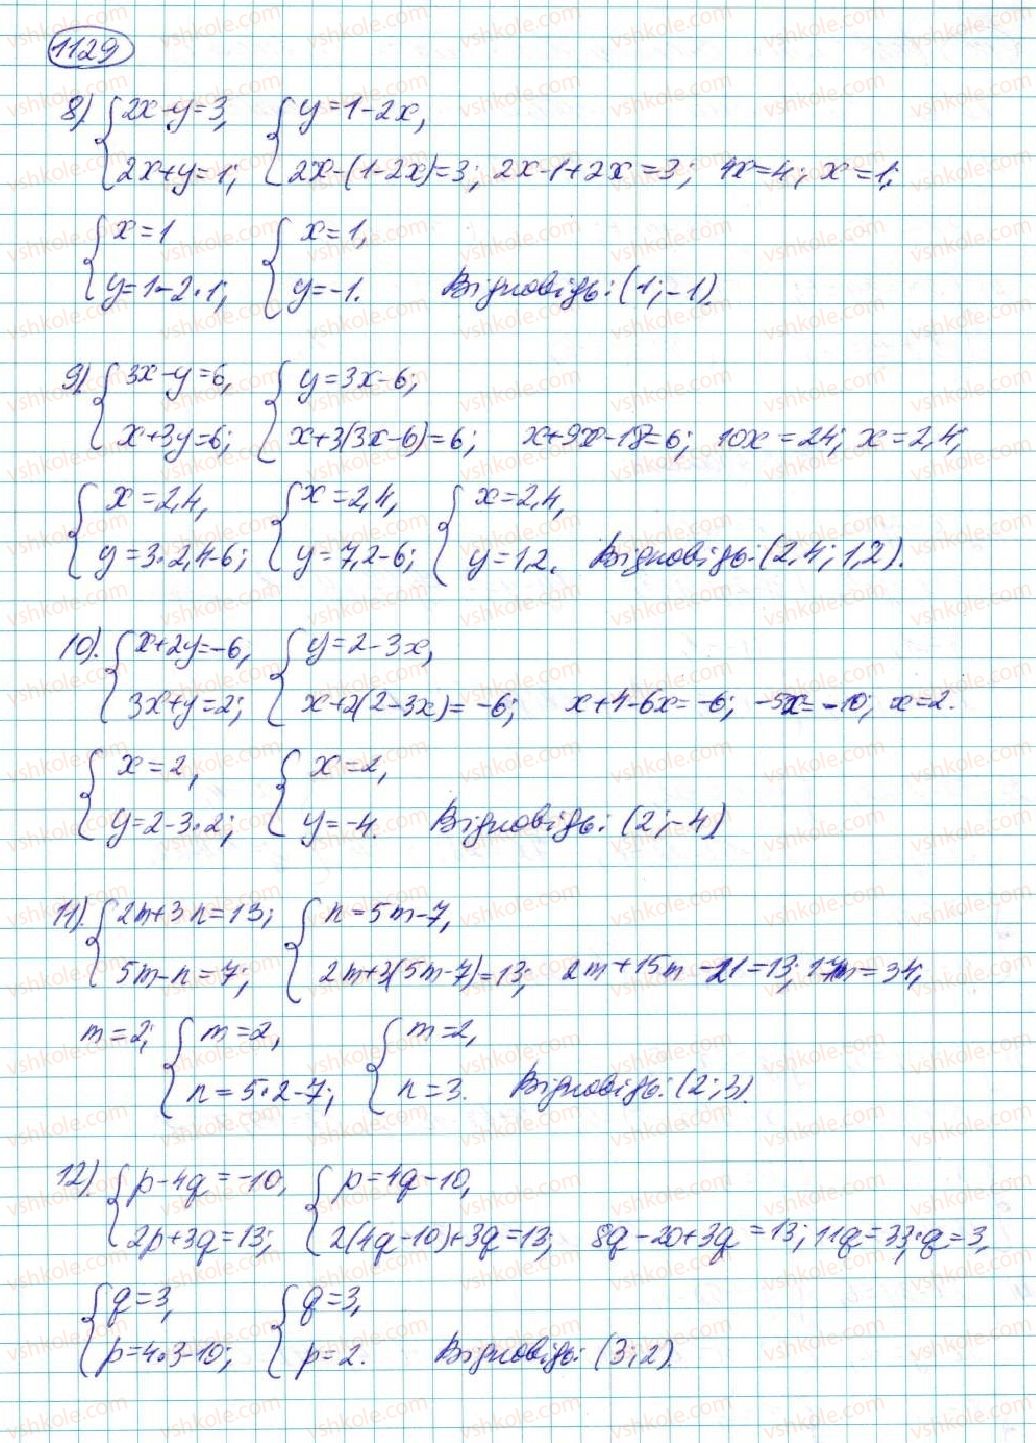 1129
8) { 2x-y=3, { y=1-2x,
2x+y=1; 2x-(1-2x)=3; 2x-1+2x=3; 4x=4; x=1;
{ x=1 { x=1,
y=1-2·1; y=-1. Відповідь: (1;-1).
9) { 3x-y=6, { y=3x-6;
x+3y=6; x+3(3x-6)=6; x+9x-18=6; 10x=24; x=2,4;
{ x=2,4, { x=2,4, { x=2,4,
y=3·2,4-6; y=7,2-6; y=1,2. Відповідь: (2,4; 1,2).
10). { x+2y=-6, { y=2-3x,
3x+y=2; x+2(2-3x)=-6; x+4-6x=-6; -5x=-10; x=2.
{ x=2, { x=2,
y=2-3·2; y=-4. Відповідь: (2;-4)
11). { 2m+3n=13; { n=5m-7,
5m-n=7; 2m+3(5m-7)=13; 2m+15m-21=13; 17m=34;
m=2; { m=2, { m=2,
n=5·2-7; n=3. Відповідь: (2;3).
12). { p-4q=-10, { p=4q-10,
2p+3q=13; 2(4q-10)+3q=13; 8q-20+3q=13; 11q=33; q=3,
{ q=3, { q=3,
p=4·3-10; p=2. Відповідь: (3;2)
vshkole.com